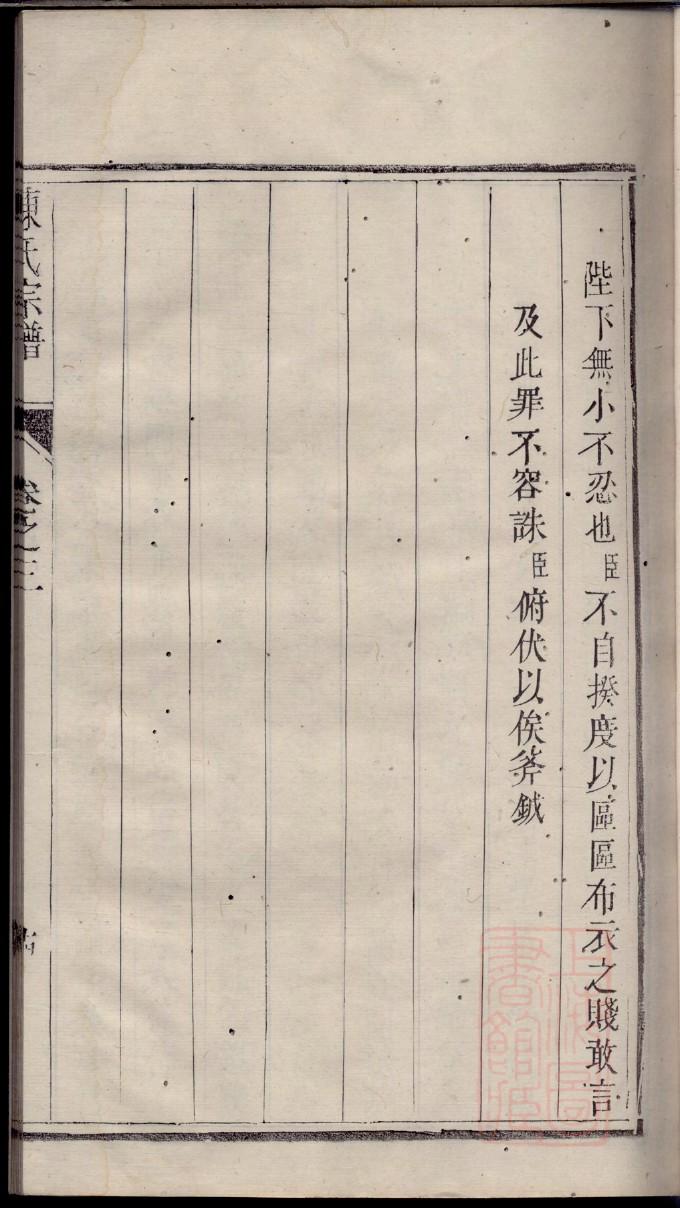 陛下無小不忍也臣不自揆度以區區布衣之賤敢言
及此罪不容誅臣俯伏以俟斧鉞
陳氏宗譜
卷之三